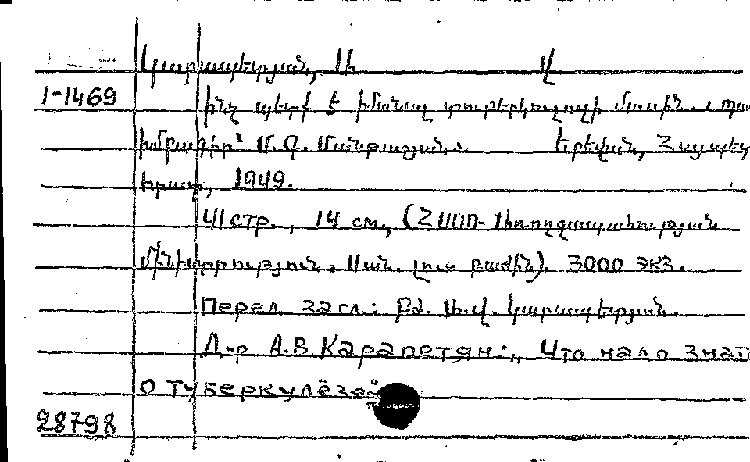 Կարապետյան, Ա. Վ
1-1469
Ինչ պետք է իմանալ տուբերկուլոզի մասին.
խմբագիր՝ Մ. Գ. Մանթաշյան. Երևան, Հայպետ
հրատ, 1949.
41 стр., 14 см, (ՀՍՍՌ Առողջապահության
Մինիստրություն. Սան. լուս բաժին). 3000 экз.
Перел загл: Բժ. Ա. Վ. Կարապետյան.
Д-р А.В. Карапетян: „Что надо знат
о туберкулёзе"
28798